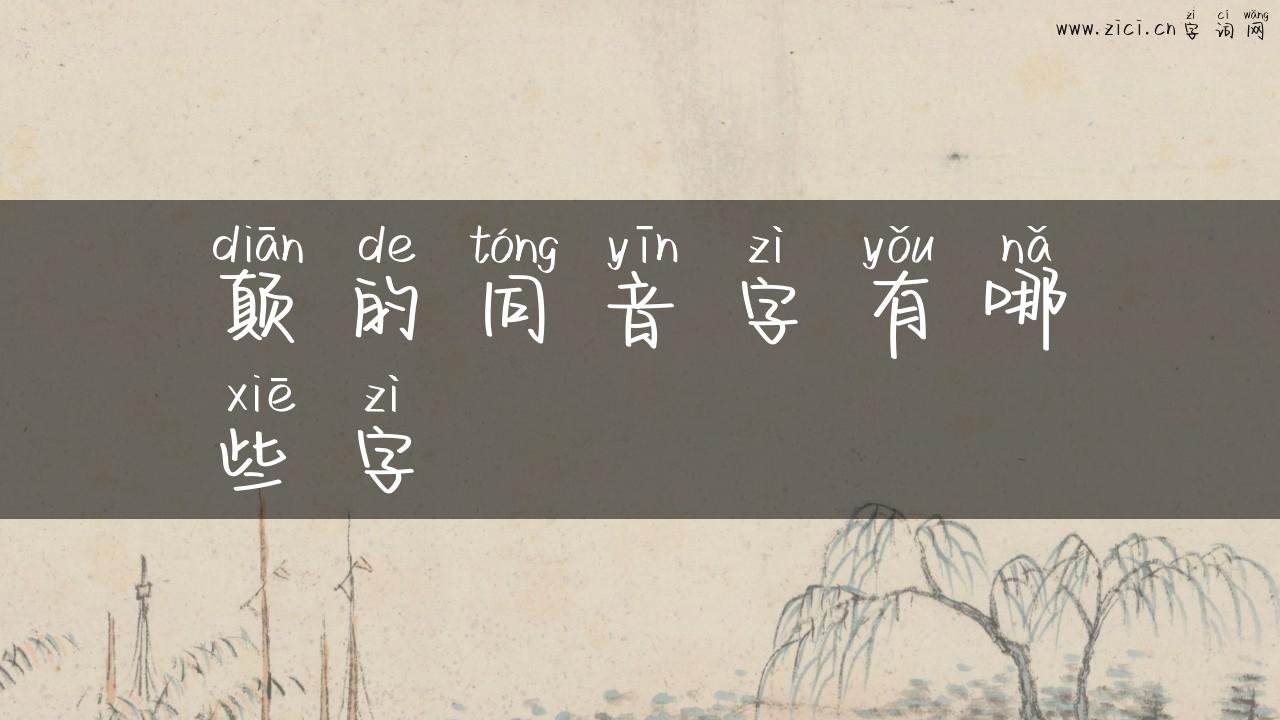 zì cí wǎng
www.zici.cn 字 词 网
diān de tóng yīn zì yǒu nǎ
颠 的 同 音 字 有 哪
xiē zì
些 字